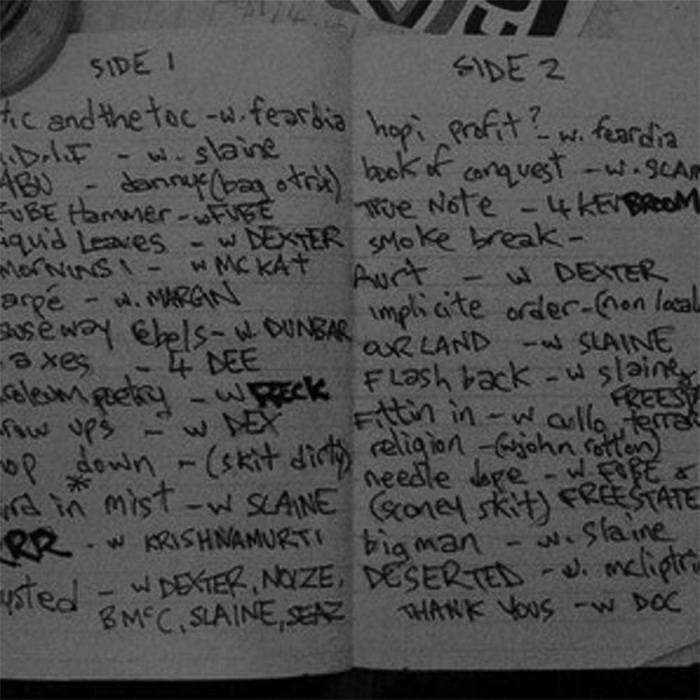 SIDE 1
tic and the toc - w. feardia
.D.I.F - w. slaine
ABU - dannyc (bag o trix)
FUBE Hammer - w FUBE
iquid Leaves - w DEXTER
MORNINS! - w MC KAT
arpé - w. MARGIN
useway Rebels - w. DUNBAR
axes - 4 DEE
oleum poetry - w RECK
row ups - w DEX
op down - (skit dirty)
ird in mist - w SLAINE
RR - w KRISHNAMURTI
usted - w DEXTER, NOIZE,
BMcC, SLAINE, SEAZ
SIDE 2
hopi profit? - w. feardia
book of conquest - w. SCAM
TRUE NOTE - 4 KEV BROOM
smoke break -
Aurt - w DEXTER
implicite order - (non local
OUR LAND - w SLAINE
Flash back - w slaine,
FREEST
Fittin in - w cullo terra
religion - (w john rotton)
needle dope - w. FUBE &
(sconey skit) FREESTATE
big man - w. slaine
DESERTED - w. mcliptri
THANK YOUS - w DOC